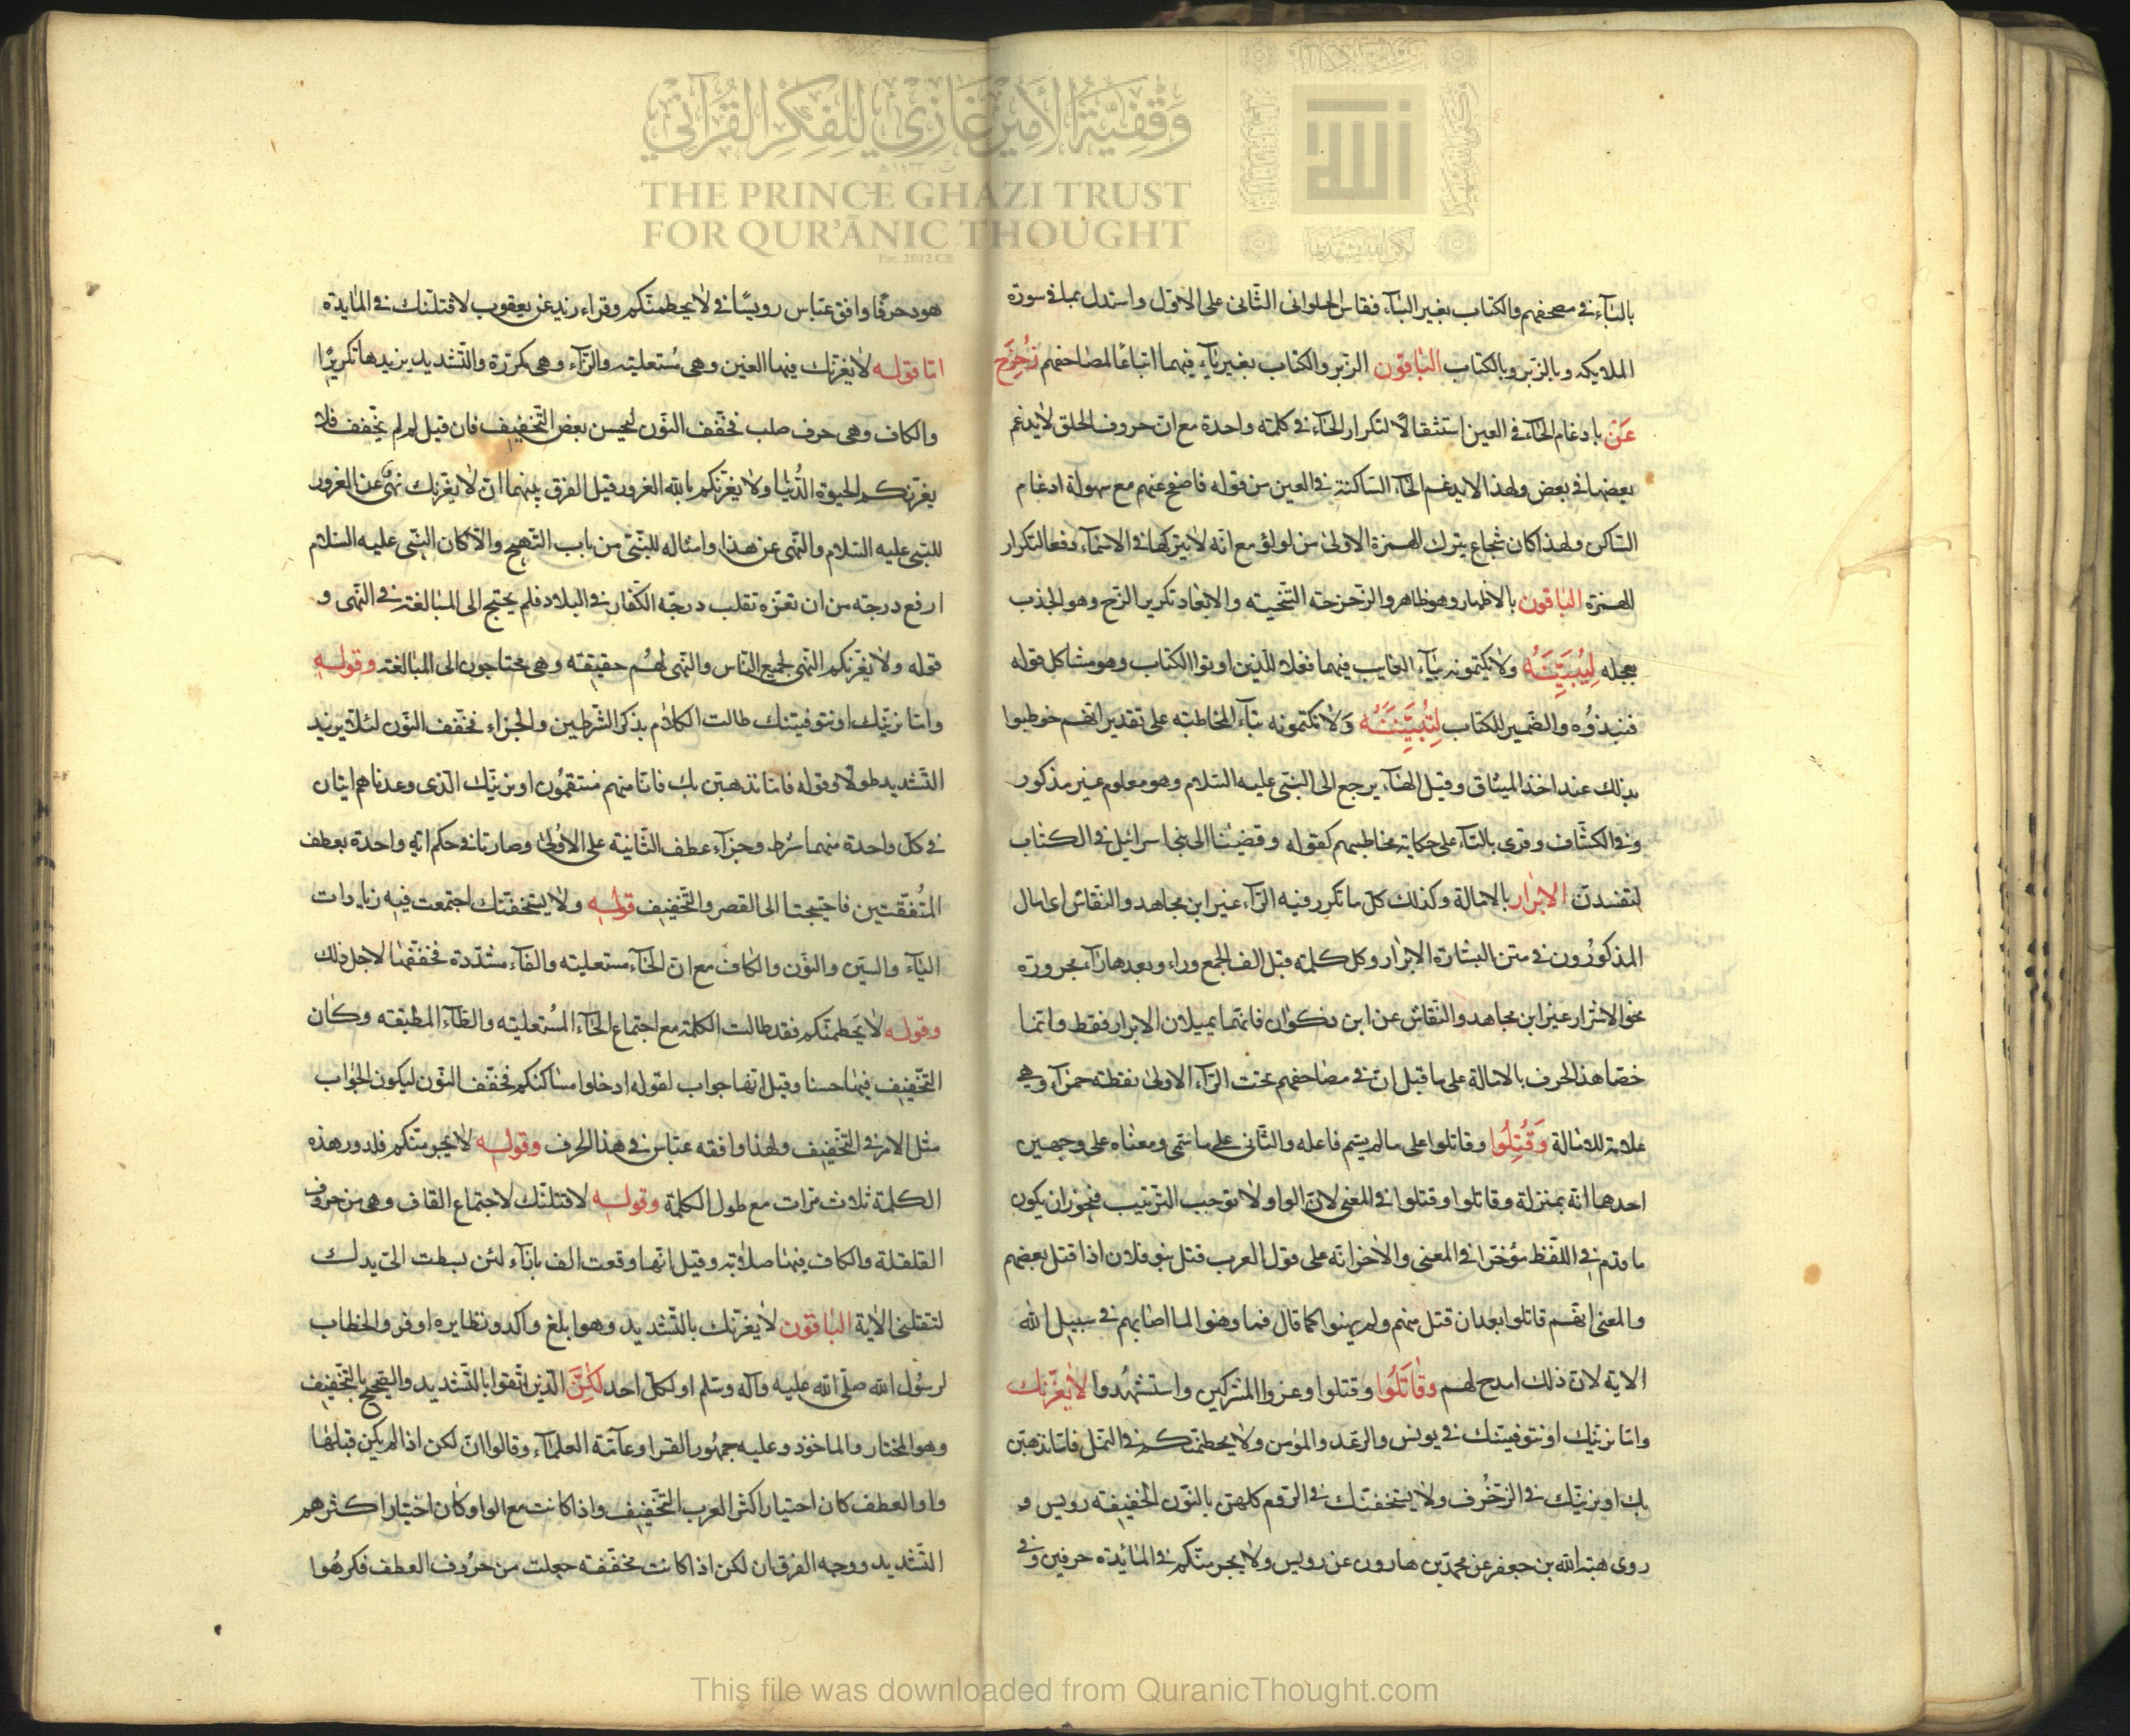 وقفية الأمير غازي للفكر القرآني
THE PRINCE GHAZI TRUST
FOR QUR'ĀNIC THOUGHT
Est. 2012 CE
بالبآء في مصحفهم والكتاب بغير البآء فقاس الحلوانى الثّانى على الاوّل واستدل بما فى سورة
الملايكه وبالزّبر وبالكتاب الباقون الزبر والكتاب بغير باءٍ فيهما اتباعًا لمصاحفهم زُحْزِحَ
عَن بادغام الحآء في العين استثقالًا لتكرار الحآء في كلمة واحدة مع انّ حروف الحلق لا يدغم
بعضها في بعض ولهذا لا يدغم الحآء السّاكنة في العين من قوله فاصفح عنهم مع سهولة ادغام
السّاكن ولهذا كان شجاع يترك الهمزة الاولىٰ من لولؤ مع انّه لا يتركها في الاسمآء دفعا لتكرار
الهمزة الباقون بالاظهار وهو ظاهر والزّحزحة التّنحية والابعاد تكرير الزّح وهو الجذب
بعجله لِيُبَيِّنَنَّه ولا يكتمونه بيآء الغايب فيهما فعلا للّذين اوتوا الكتاب وهو مشاكل قوله
فنبذوُه والضّمير للكتاب لِتُبَيِّنُنَّه وَلا تكتمونه بتآء المخاطبه على تقدير انّهم خوطبوا
بذلك عند اخذ الميثاق وقيل الهآء يرجع الى النبىّ عليه السّلام وهو معلوم غير مذكور
وفى الكشّاف وقرى بالتآء على حكاية مخاطبهم كقوله وقضينا الى بنى اسرائيل فى الكتاب
لتفسدنّ الابرار بالامالة وكذلك كلّ ما تكرر فيه الرّآء غير ابن مجاهد والنقّاش اى امال
المذكورُون في متن البشارة الابرار وكل كلمة قبل الف الجمع وراء وبعدها رآء مجرورة
نحو الاشرار غير ابن مجاهد والنّقاش عن ابن ذكوان فانّهما يميلان الابرار فقط وانّما
خصّا هذا الحرف بالامالة على ما قيل انّ في مصاحفهم تحت الرّآء الاولىٰ نقطة حمرآء وهى
علامة للامالة وَقُتِلُوا وقاتلوا على ما لم يسّم فاعله والثّانى على ما سمّى ومعناه على وجهين
احدهما انّه بمنزلة وقاتلوا وقتلوا في المعنى لانّ الواو لا توجب الترتيب فيجوز ان يكون
ما قدّم في اللّفظ مؤخّرا في المعنى والاخر انّه على قول العرب قتل بنو فلان اذا قتل بعضهم
والمعنى انّهم قاتلوا بعد ان قتل منهم ولم يهنوا كما قال فما وهنوا لما اصابهم في سبيل الله
الاية لانّ ذلك امدح لهم وقَاتَلُوا وقتلوا وغزوا المشركين واستشهدوا لا يغرّنك
وامّا نرينّك او نتوفينّك في يونس والرّعد والمؤمن ولا يحطمنّكم في النّمل فامّا نذهبنّ
بك او نرينّك في الزّخُرف ولا يستخفنّك في الرّوم كلهنّ بالنّون الخفيفة رويس و
روى هبة الله بن جعفر عن محمّد بن هارون عن رويس ولا يجرمنّكم في المائدة حرفين وفى
هود حرفًا وافق عبّاس رويسًا في لا يحطمنّكم وقراء زيد عن يعقوب لاقتلنّك في المايدة
امّا قوله لا يغرّنك فيها الغين وهى مُستعلية والرّآء وهى مكرّرة والتّشديد يزيدها تكريرًا
والكاف وهى حرف صلب فخفّف النّون لحيسن بعض التّخفيف فان قيل لم لم يخّفف فلا
يغرّنكم الحيوة الدُّنيا ولا يغرّنكم بالله الغرور قيل الفرق بينهما انّ لا يغرّنك نهىٌ عن الغرور
للنّبى عليه السّلام والنّهى عن هذا وامثاله للنّبىّ من باب التّهيج والّا كان النّبى عليه السّلام
ارفع درجة من ان تغرّه تقلب درجّة الكفّار في البلاد فلم يحتج الى المبالغة في النّهى و
قوله ولا يغرّنكم النّهى لجميع النّاس والنّهى لهُم حقيقة وهى محتاجون الى المبالغة وقوله
وامّا نرينّك او نتوفينّك طالت الكلام بذكر الشّرطين والجزاء فخّفف النّون لئلا يزيد
التّشديد طولًا وقوله فامّا نذهبنّ بك فانّا منهم منتقمُون او نرينّك الّذى وعدناهم ايتان
في كلّ واحدة منهما شرط وجزآء عطف الثّانية على الاوُلىٰ وصارتا في حكم اية واحدة بعطف
المتّفقتين فاحتيجتا الى القصر والتّخفيف قوله ولا يستخفنّك اجتمعت فيه زيادات
اليآء والسّين والنّون والكاف مع انّ الخآء مستعلية والفآء مشدّدة فخفّفها لاجل ذلك
وقوله لا يحطمنّكم فقد طالت الكلمة مع اجتماع الخآء المُستعلية والطّآء المطبقة وكان
التّخفيف فيها حسنا وقيل انّها جواب لقوله ادخلوا مساكنكم فخفّف النّون ليكون الجواب
مثل الامر في التّخفيف ولهذا وافقه عبّاس في هذا الحرف وقوله لا يجرمنّكم فلدور هذه
الكلمة ثلاث مرّات مع طول الكلمة وقوله لاقتلنّك لاجتماع القاف وهى من حروف
القلقلة والكاف فيها صلابة وقيل انّها وقعت الف بازآء لئن بسطت الىّ يدك
لتقتلنى الاية الباقون لا يغرّنك بالتّشديد وهو ابلغ واكد ونظايره اوفر والخطاب
لرسُول الله صلّى الله عليه وآله وسّلم او لكلّ احد لكِنَّ الّذين اتّقوا بالتّشديد والصّحيح بالتّخفيف
وهو المختار والماخوذ وعليه جمهُور القرا وعآمّة العلمآء وقالوا انّ لكن اذا لم يكن قبلها
واو العطف كان اختيار اكثر العرب التّخفيف واذا كانت مع الواو كان اختيار اكثرهم
التّشديد ووجه الفرق ان لكن اذا كانت مخفّفة جعلت من حرُوف العطف فكرهُوا
This file was downloaded from QuranicThought.com